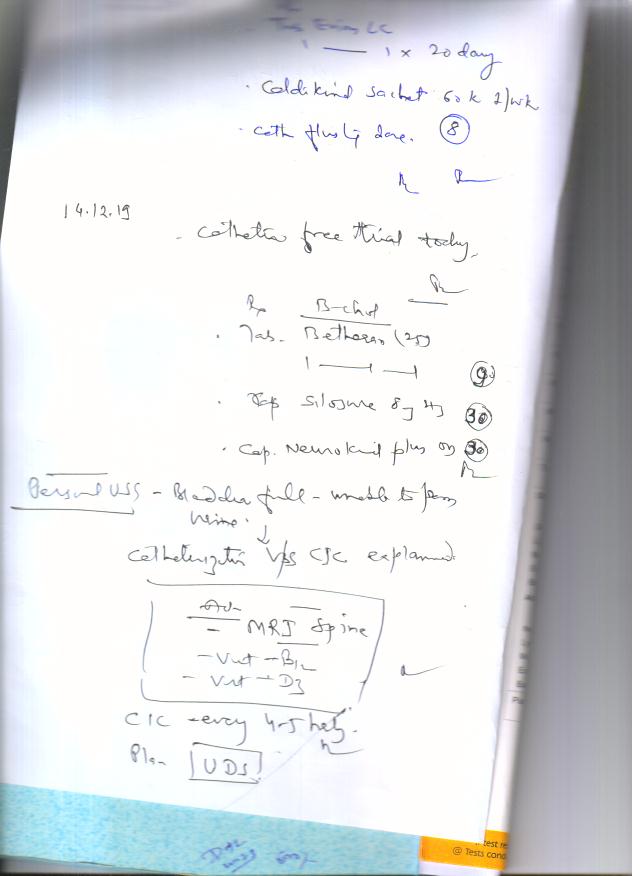 1 — 1 x 20 day
. Caldikind sachet 60k 1/wk
. Cath flushing done. 8
14.12.19
- Catheter free trial today.
Rx B-chol
. Tab. (25)
1 — —
. Cap Silosure 8g 30
. Cap. Neurokind plus on 30
Personal USS - Bladder full - unable to pass
urine.
↓
Catheterization V/s CIC explained.
Adv
- MRI Spine
- Vit - B12
- Vit - D3
CIC - every 4-5 hrly.
Plan UDS
test re
@ Tests cond